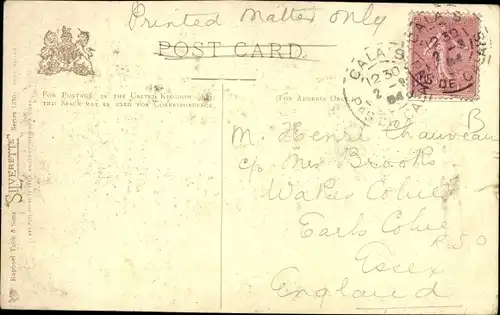 Printed Matter Only
POST CARD.
FOR POSTAGE IN THE UNITED KINGDOM ONLY
THIS SPACE MAY BE USED FOR CORRESPONDENCE.
(FOR ADDRESS ONLY.)
CALAIS
12 30
2
04
PAS DE CALAIS
B
M. Henri Chauveau
c/o Mrs Brooks
Wakes Colne
Earls Colne
R 50
Essex
England
Raphael Tuck & Sons' "SILVERETTE"